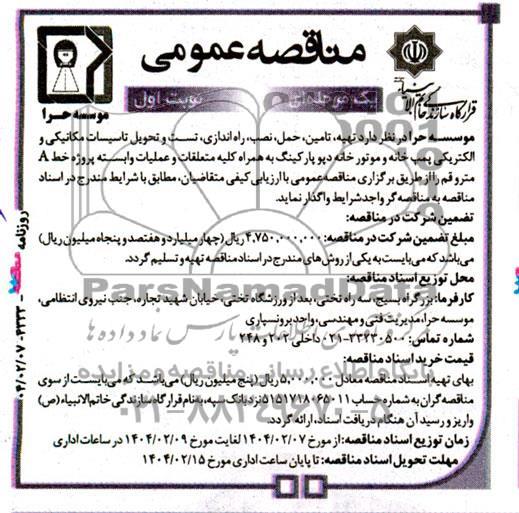 مناقصه عمومی
یک مرحله‌ای
نوبت اول
موسسه حرا
موسسه حرا در نظر دارد تهیه، تامین، حمل، نصب، راه اندازی، تست و تحویل تاسیسات مکانیکی و
الکتریکی پمپ خانه و موتور خانه دپو پارکینگ به همراه کلیه متعلقات و عملیات وابسته پروژه خط A
مترو قم را از طریق برگزاری مناقصه عمومی با ارزیابی کیفی متقاضیان، مطابق با شرایط مندرج در اسناد
مناقصه به مناقصه گر واجد شرایط واگذار نماید.
تضمین شرکت در مناقصه:
مبلغ تضمین شرکت در مناقصه: ۴.۷۵۰.۰۰۰.۰۰۰ ریال (چهار میلیارد و هفتصد و پنجاه میلیون ریال)
می‌باشد که می‌بایست به یکی از روش‌های مندرج در اسناد مناقصه تهیه و تسلیم گردد.
محل توزیع اسناد مناقصه:
کارفرما: بزرگراه بسیج، سه راه تختی، بعد از ورزشگاه تختی، خیابان شهید تجاره، جنب نیروی انتظامی،
موسسه حرا، مدیریت فنی و مهندسی، واحد برونسپاری
شماره تماس: ۳۳۲۳۰۵۰۰-۰۲۱ داخلی ۲۰۲ و ۲۴۸
قیمت خرید اسناد مناقصه:
بهای تهیه اسناد مناقصه معادل ۵.۰۰۰.۰۰۰ ریال (پنج میلیون ریال) می‌باشد که می‌بایست از سوی
مناقصه گران به شماره حساب ۵۱۵۱۷۱۸۰۶۵۰۱۱ نزد بانک سپه، بنام قرارگاه سازندگی خاتم الانبیاء (ص)
واریز و رسید آن هنگام دریافت اسناد، ارائه گردد.
زمان توزیع اسناد مناقصه: از مورخ ۱۴۰۴/۰۲/۰۷ لغایت مورخ ۱۴۰۴/۰۲/۰۹ در ساعات اداری
مهلت تحویل اسناد مناقصه: تا پایان ساعت اداری مورخ ۱۴۰۴/۰۲/۱۵
روزنامه
۰۴/۰۲/۰۷
ParsNamadData
پایگاه اطلاع رسانی مناقصه و مزایده
۰۲۱-۸۸۳۴۹۶۷۰-۵